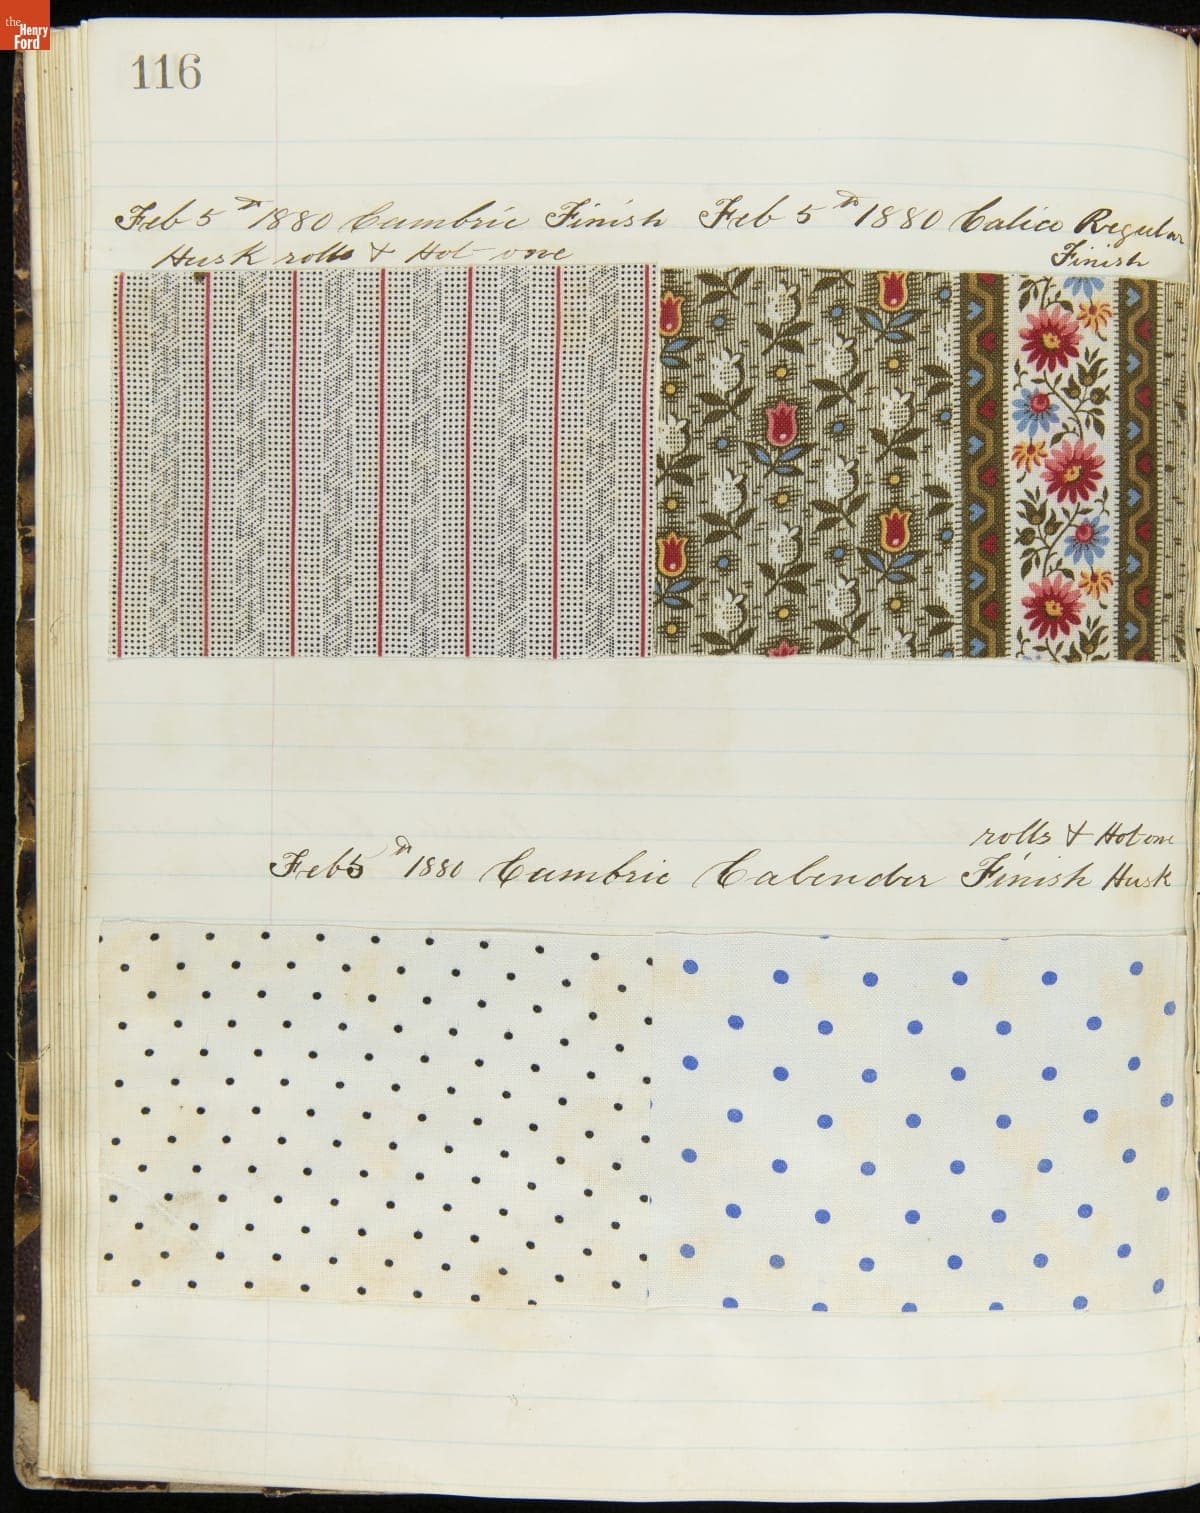 the
Henry
Ford
116
Feb 5th 1880 Cambric Finish
Husk rolls & Hot one
Feb 5th 1880 Calico Regular
Finish
rolls & Hot one
Feb 5th 1880 Cambric Calender Finish Husk